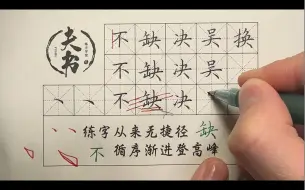 夫书
不缺决吴换
不缺决吴
不缺决
练字从来无捷径 缺
不 循序渐进登高峰